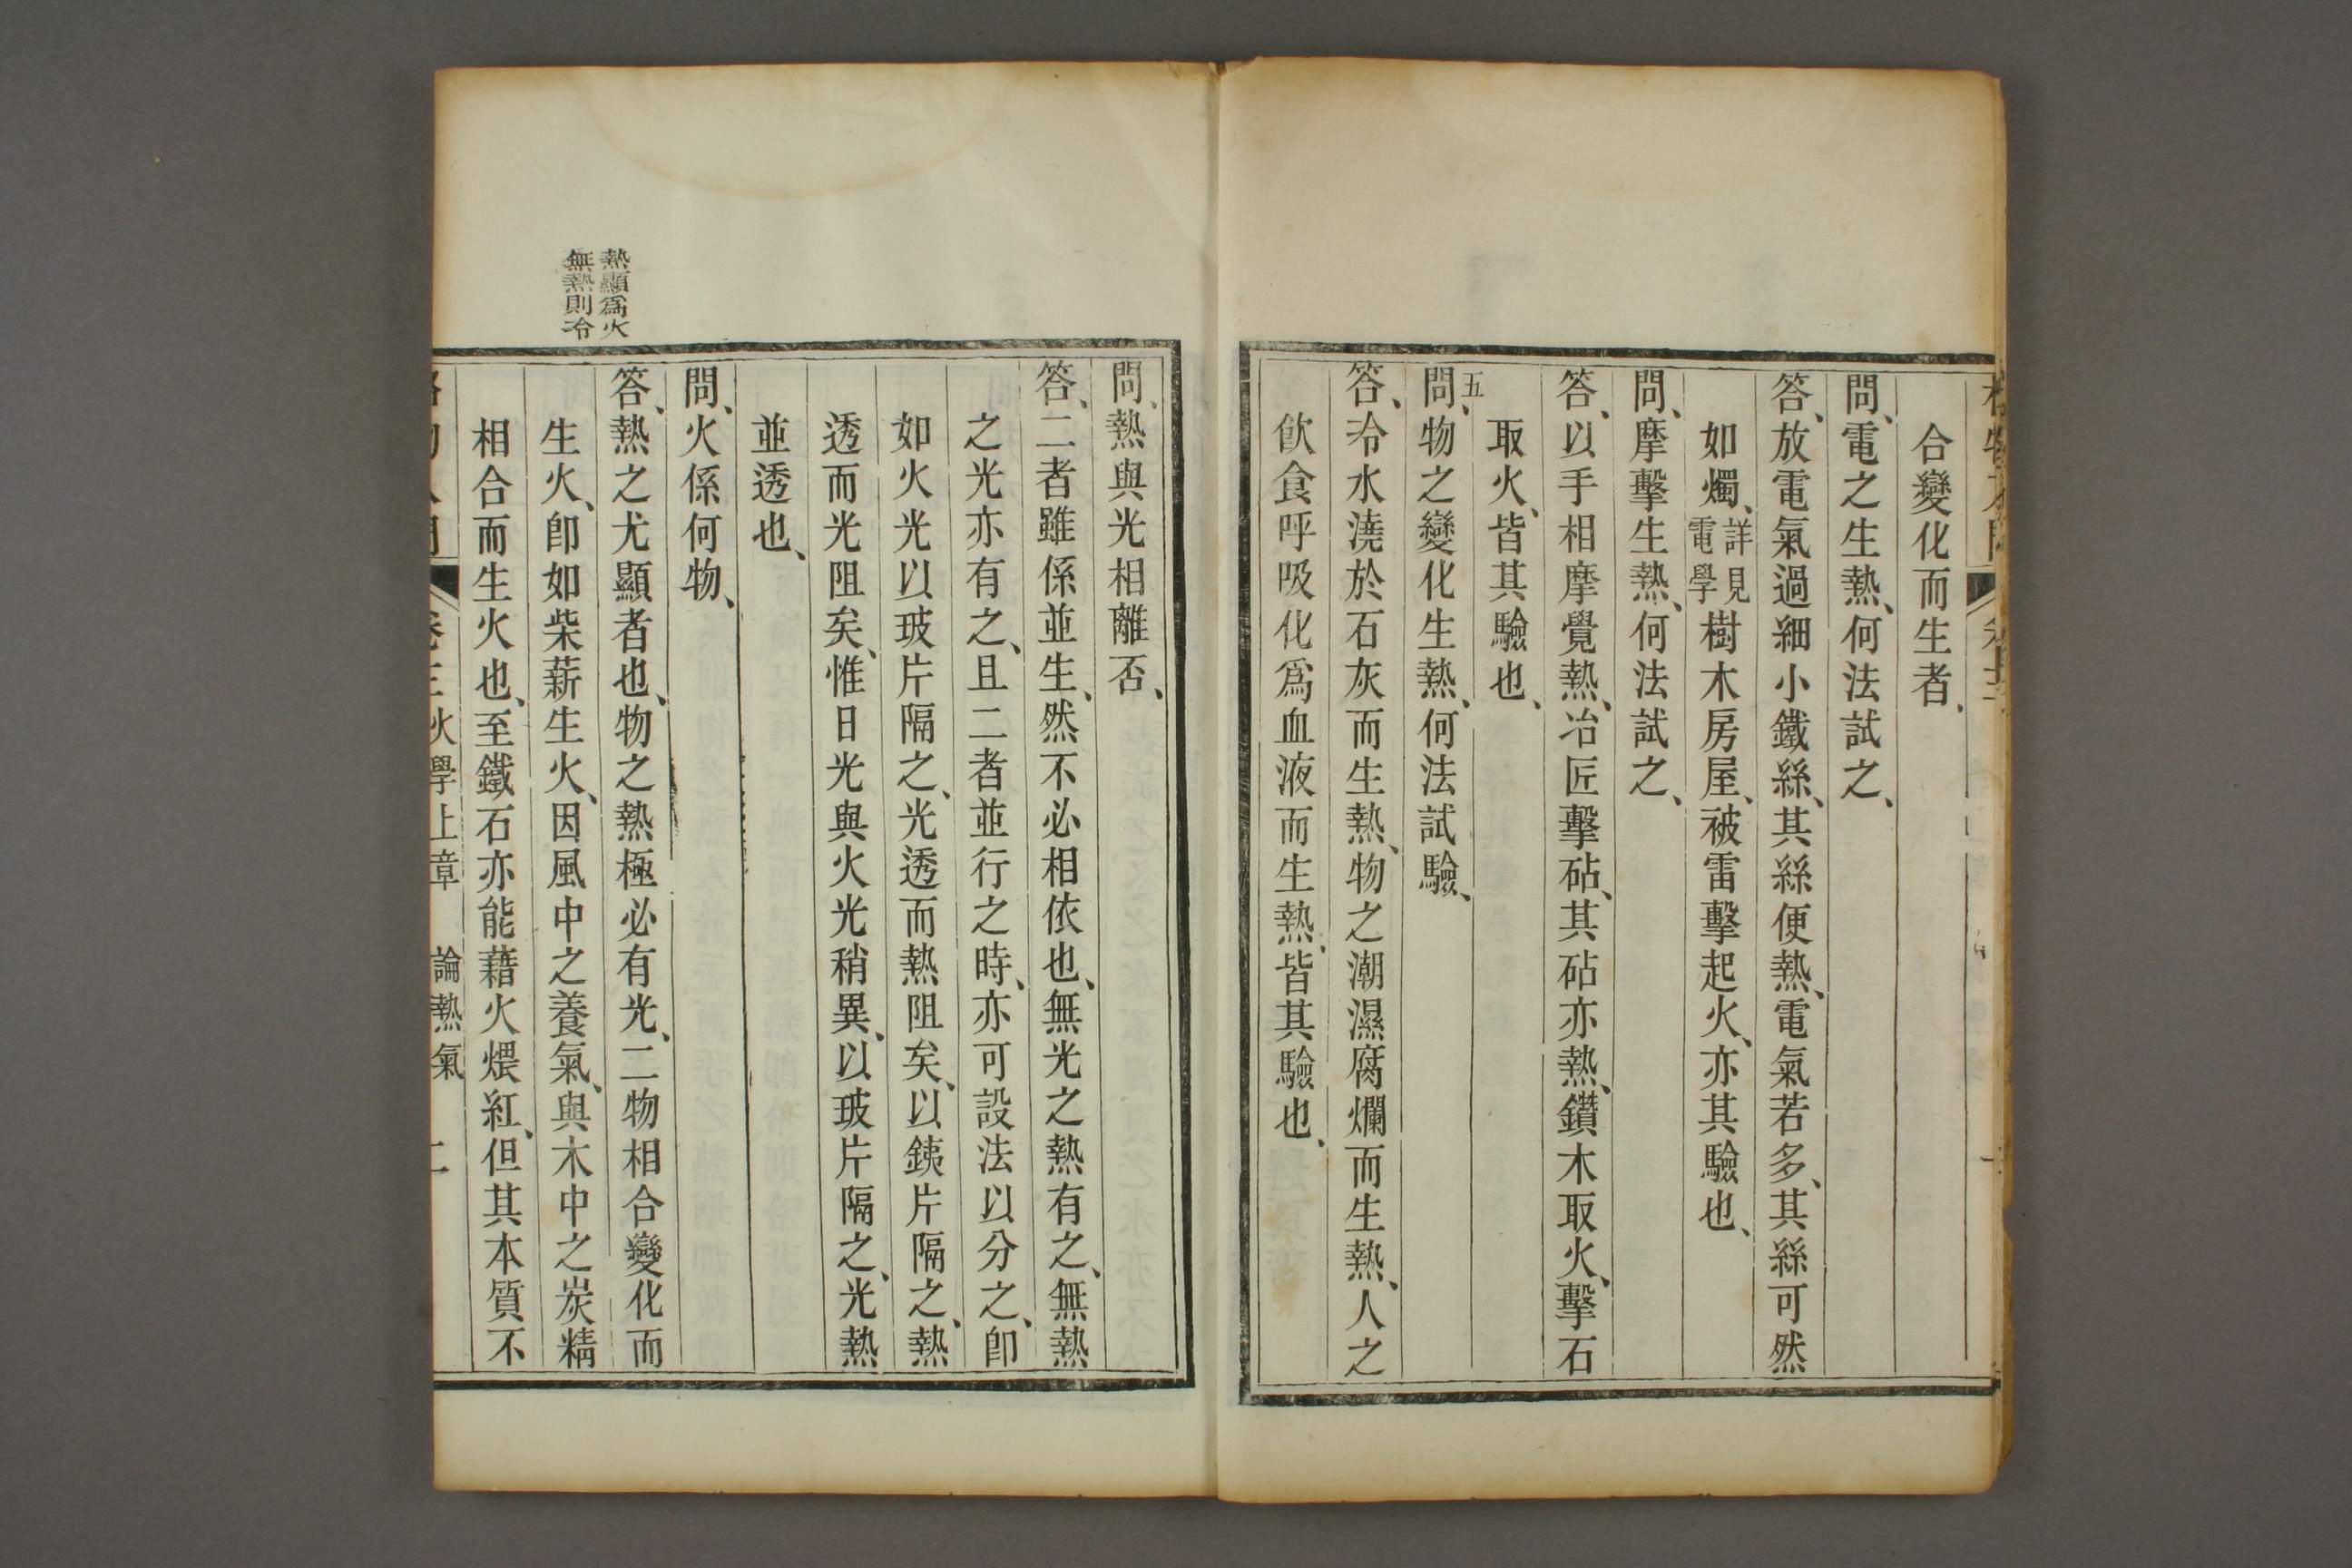 合變化而生者、
問、電之生熱、何法試之、
答、放電氣過細小鐵絲、其絲便熱、電氣若多、其絲可然
如燭、詳見電學樹木房屋、被雷擊起火、亦其驗也、
問、摩擊生熱、何法試之、
答、以手相摩覺熱、冶匠擊砧、其砧亦熱、鑽木取火、擊石
取火、皆其驗也、
五
問、物之變化生熱、何法試驗、
答、冷水澆於石灰而生熱、物之潮濕腐爛而生熱、人之
飲食呼吸化爲血液而生熱、皆其驗也、
問、熱與光相離否、
答、二者雖係並生、然不必相依也、無光之熱有之、無熱
之光亦有之、且二者並行之時、亦可設法以分之、卽
如火光以玻片隔之、光透而熱阻矣、以銕片隔之、熱
透而光阻矣、惟日光與火光稍異、以玻片隔之、光熱
並透也、
問、火係何物、
熱顯爲火
無熱則冷
答、熱之尤顯者也、物之熱極必有光、二物相合變化而
生火、卽如柴薪生火、因風中之養氣、與木中之炭精
相合而生火也、至鐵石亦能藉火煨紅、但其本質不
火學上章 論熱氣